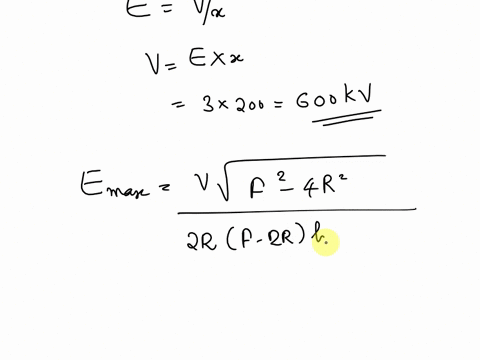 E = V/x
V = E x x
= 3 x 200 = 600 kV
E max = V √ f ² - 4R²
2R (f - 2R) l